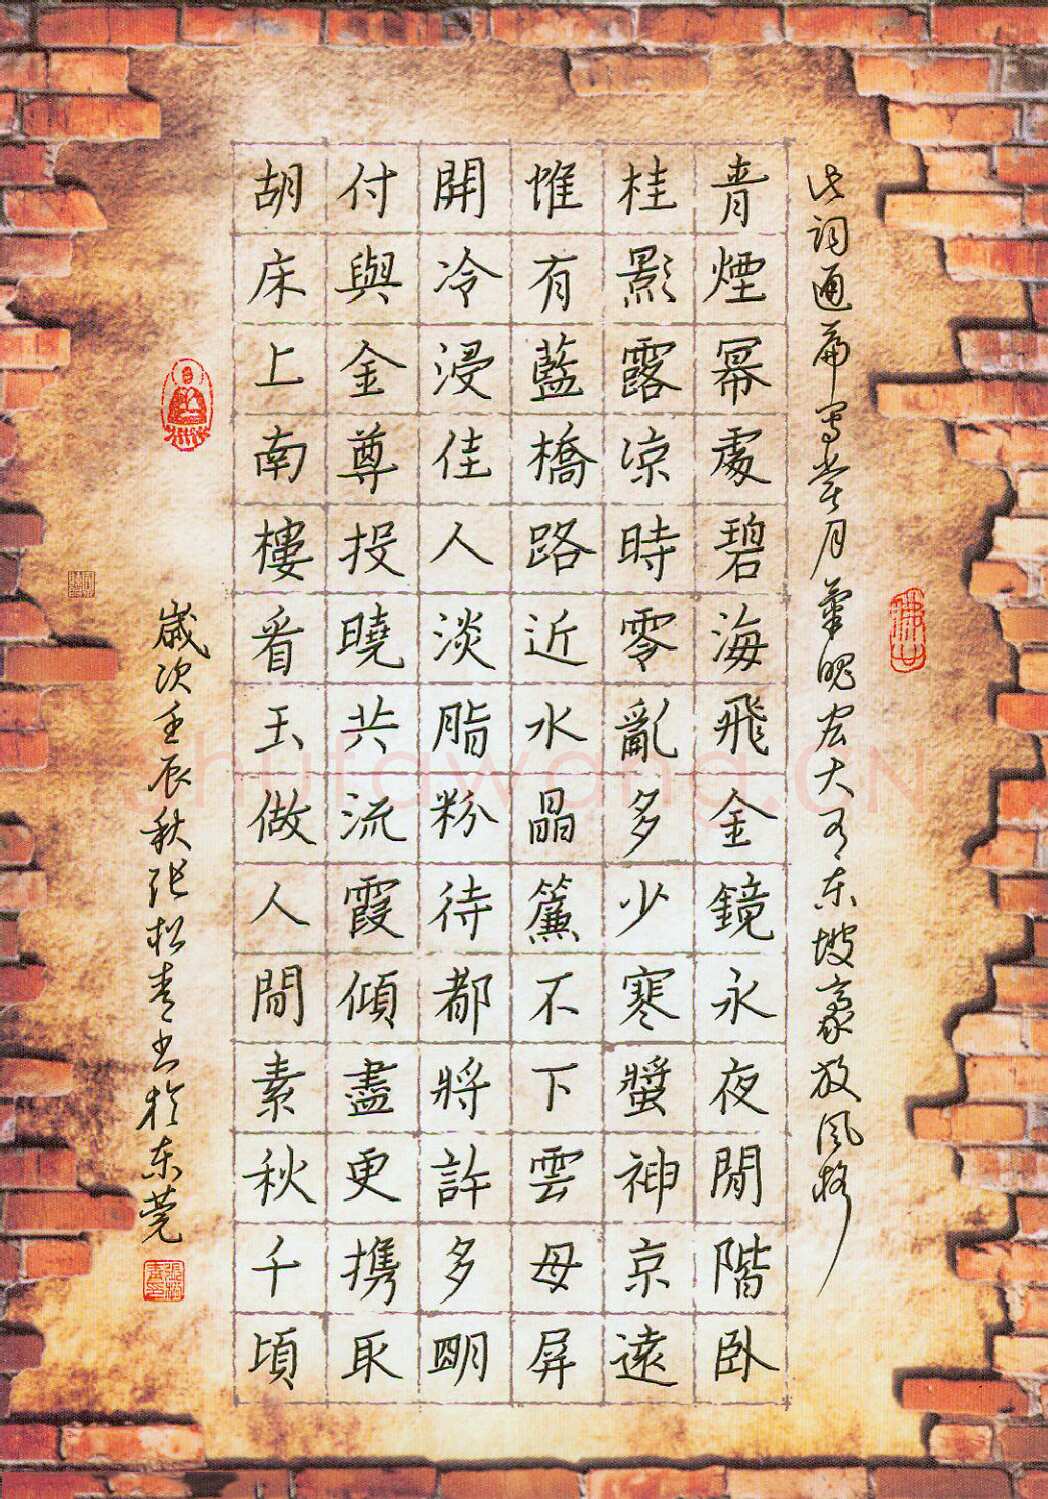 此詞通篇寫賞月氣魄宏大有东坡豪放風格
青煙冪處碧海飛金鏡永夜閒階卧
桂影露凉時零亂多少寒螿神京遠
惟有藍橋路近水晶簾不下雲母屏
開冷浸佳人淡脂粉待都將許多明
付與金尊投曉共流霞傾盡更携取
胡床上南樓看玉做人間素秋千頃
歲次壬辰秋张松青书於东莞
shufawang.CN